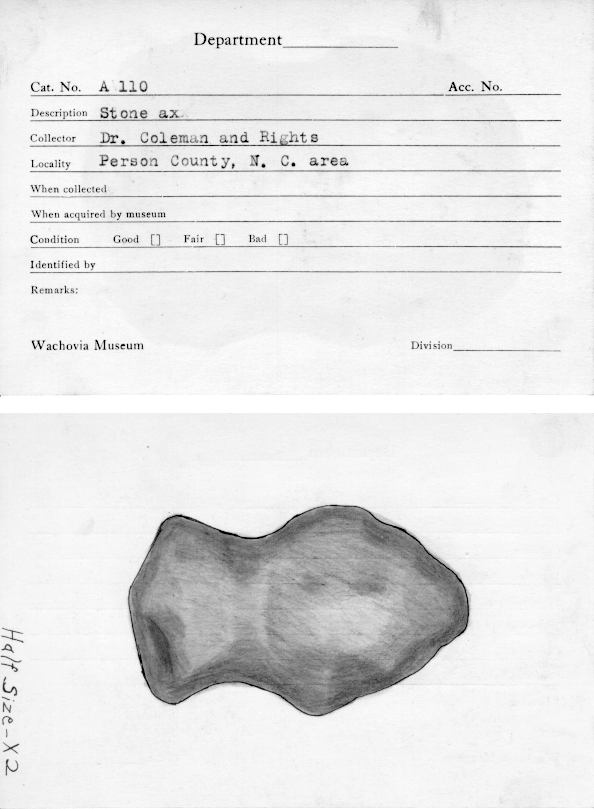 Department
Cat. No. A 110 Acc. No.
Description Stone ax
Collector Dr. Coleman and Rights
Locality Person County, N. C. area
When collected
When acquired by museum
Condition Good [] Fair [] Bad []
Identified by
Remarks:
Wachovia Museum Division
Half Size-X2